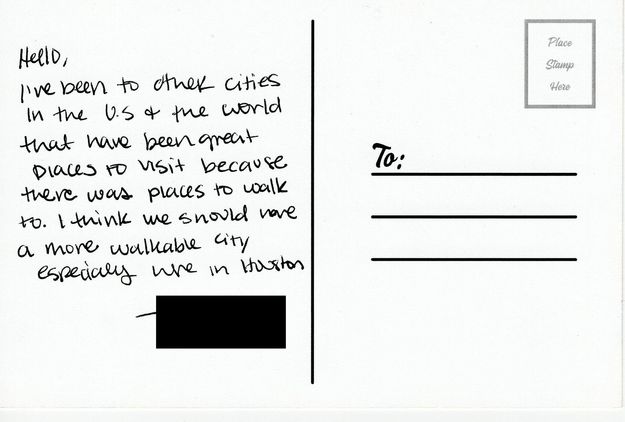 Hello,
I've been to other cities
in the U.S & the world
that have been great
places to visit because
there was places to walk
to. I think we should have
a more walkable city
especially here in Houston
Place
Stamp
Here
To: